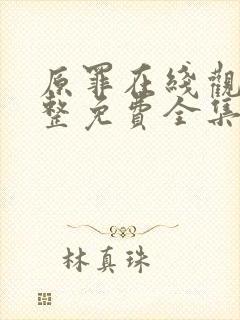 原罪在綫觀
整免費全集
林真珠